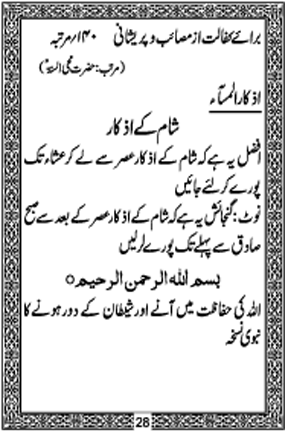 برائے کفالت از مصائب و پریشانی ۱۴۰ مرتبہ
(مرتب: حضرت محی السنۃؒ)
اذکار المسآء
شام کے اذکار
افضل یہ ہے کہ شام کے اذکار عصر سے لے کر عشاء تک
پورے کر لئے جائیں
نوٹ: گنجائش یہ ہے کہ شام کے اذکار عصر کے بعد سے صبح
صادق سے پہلے تک پورے کر لیں
بسم الله الرحمن الرحيم
اللہ کی حفاظت میں آنے اور شیطان کے دور ہونے کا
نبوی نسخہ
28